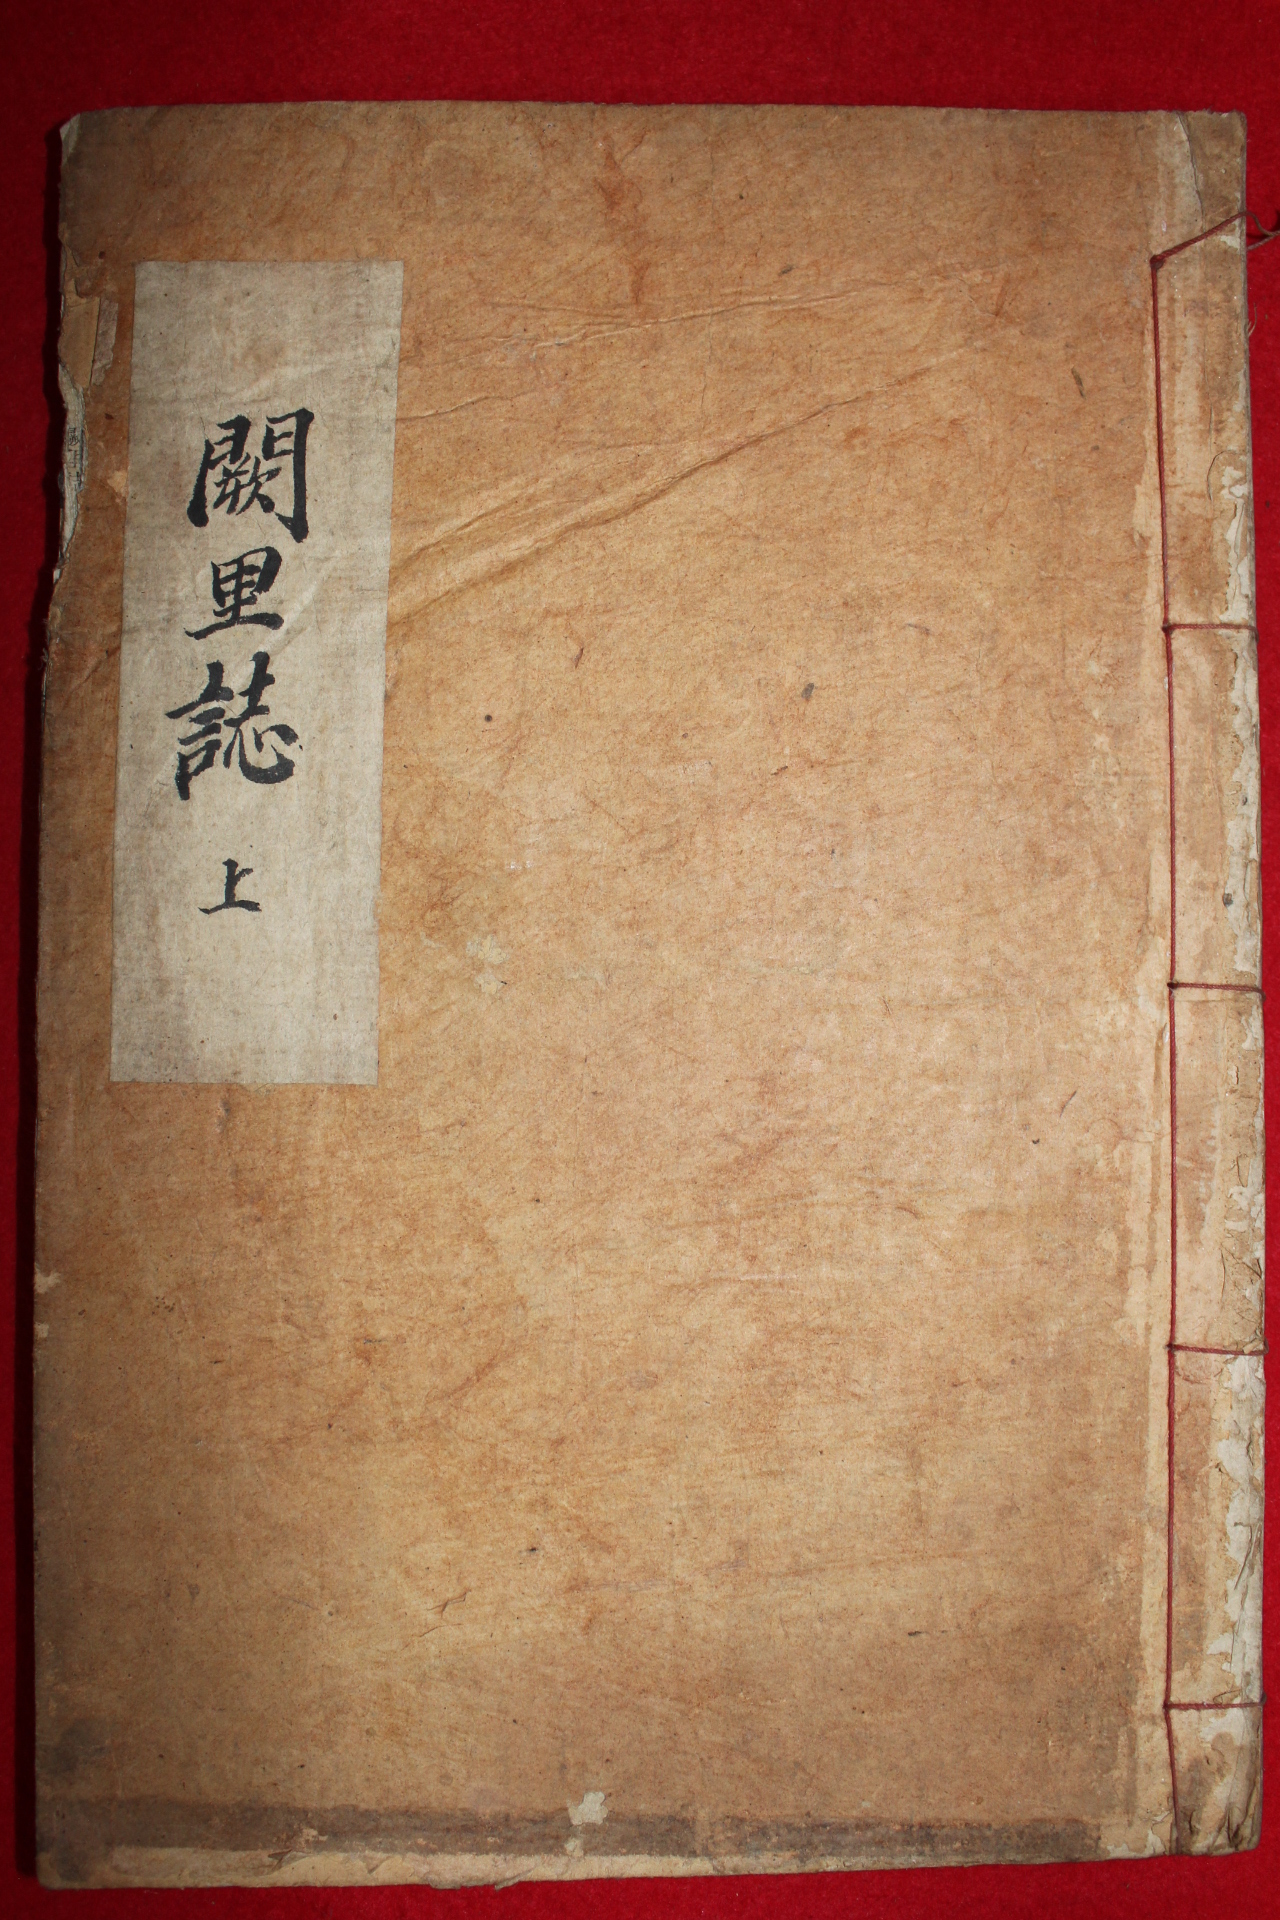 闕里誌 上